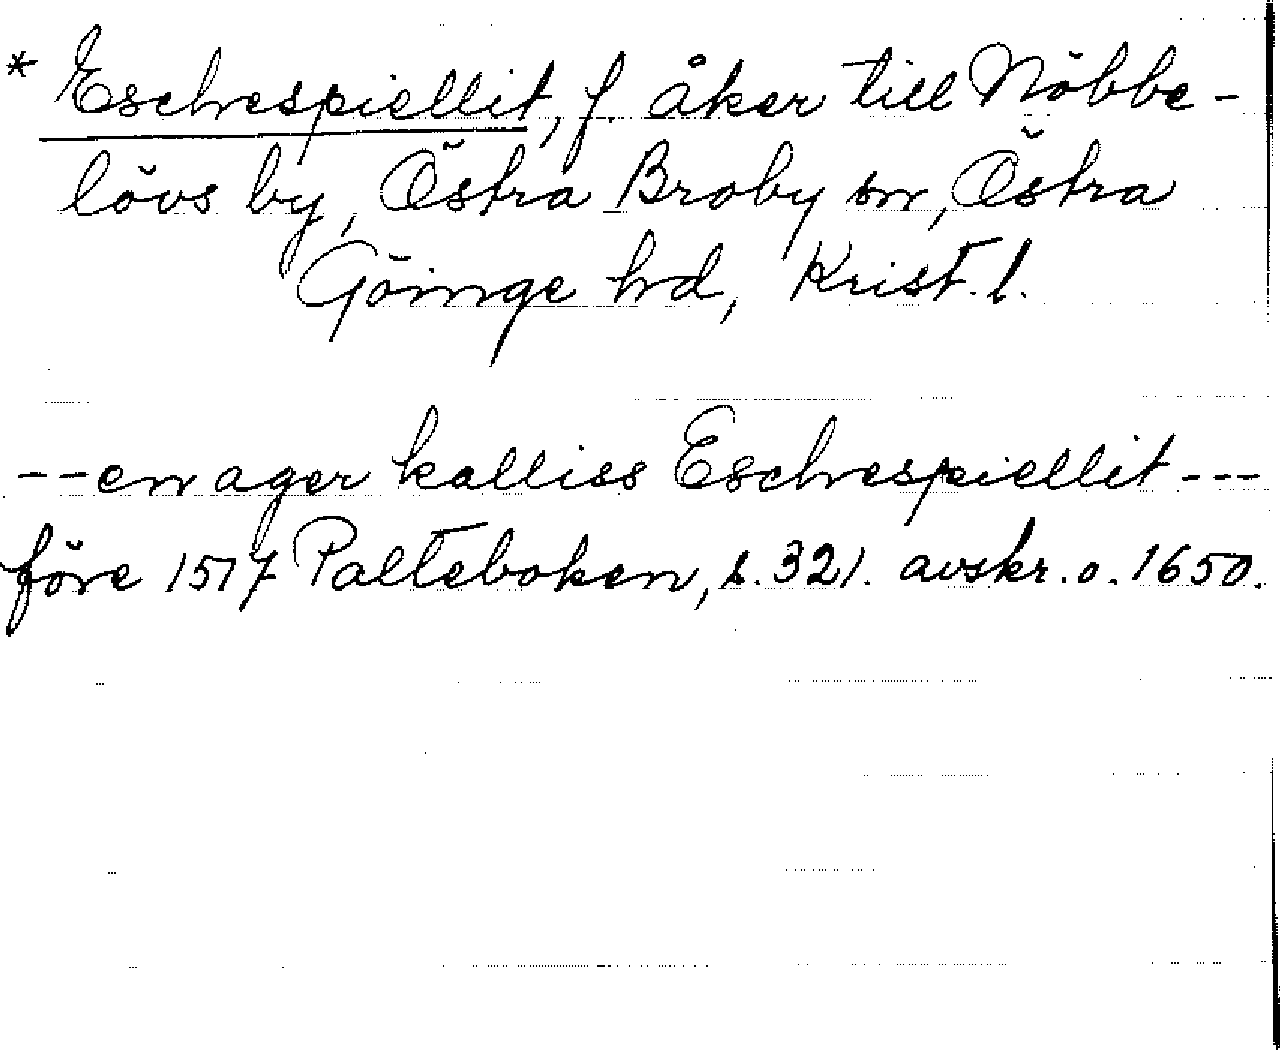 * Eschespiellit, f. åker till Nöbbe-
lövs by, Östra Broby sn, Östra
Göinge hd, Krist. l.
--en ager kalliss Eschespiellit---
före 1517 Palteboken, s. 321. avskr. o. 1650.